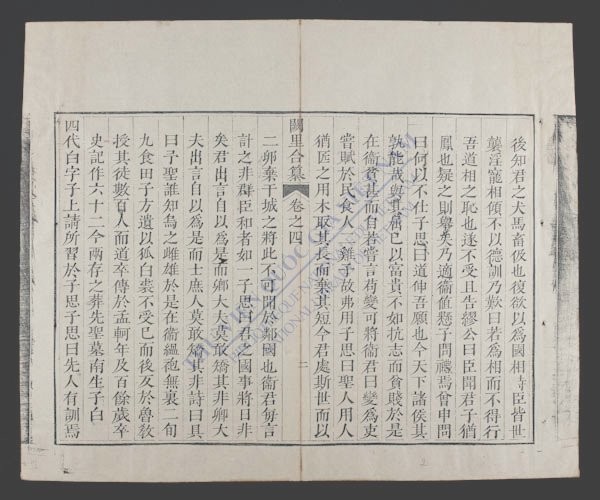 後知君之犬馬畜伋也復欲以爲國相時臣皆世
襲淫寵相傾不以德訓乃歎曰若爲相而不得行
吾道相之恥也遂不受且告繆公曰臣聞君子猶
鳳也疑之則舉矣乃適衞値懸子問禮焉曾申問
曰何以不仕子思曰道伸吾願也今天下諸侯其
孰能哉與其屈己以富貴不如抗志而貧賤於是
在衞貧甚而自若嘗言苟變可將衞君曰變爲吏
嘗賦於民食人二雞子故弗用子思曰聖人用人
猶匠之用木取其長而棄其短今君處斯世而以
闕里合纂 卷之四 二
二卵棄干城之將此不可聞於鄰國也衞君每言
計之非群臣和者如一子思曰君之國事將日非
矣君出言自以爲是而卿大夫莫敢矯其非卿大
夫出言自以爲是而士庶人莫敢矯其非詩曰具
曰予聖誰知烏之雌雄於是在衞緼袍無裏二旬
九食田子方遺以狐白裘不受已而後反於魯敎
授其徒數百人而道卒傳於孟軻年及百餘歲卒
史記作六十二今兩存之葬先聖墓南生子白
四代白字子上請所習於子思子思曰先人有訓焉